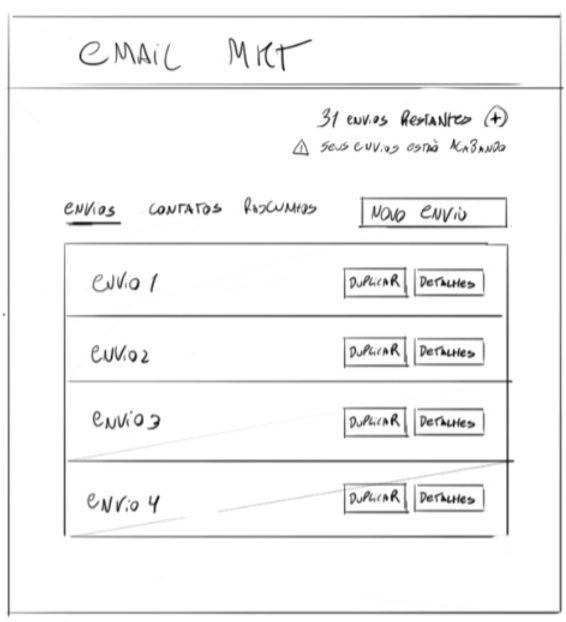 EMAIL MKT
31 ENVIOS RESTANTES (+)
⚠ SEUS ENVIOS ESTÃO ACABANDO
ENVIOS CONTATOS RASCUNHOS NOVO ENVIO
ENVIO 1 DUPLICAR DETALHES
ENVIO 2 DUPLICAR DETALHES
ENVIO 3 DUPLICAR DETALHES
ENVIO 4 DUPLICAR DETALHES